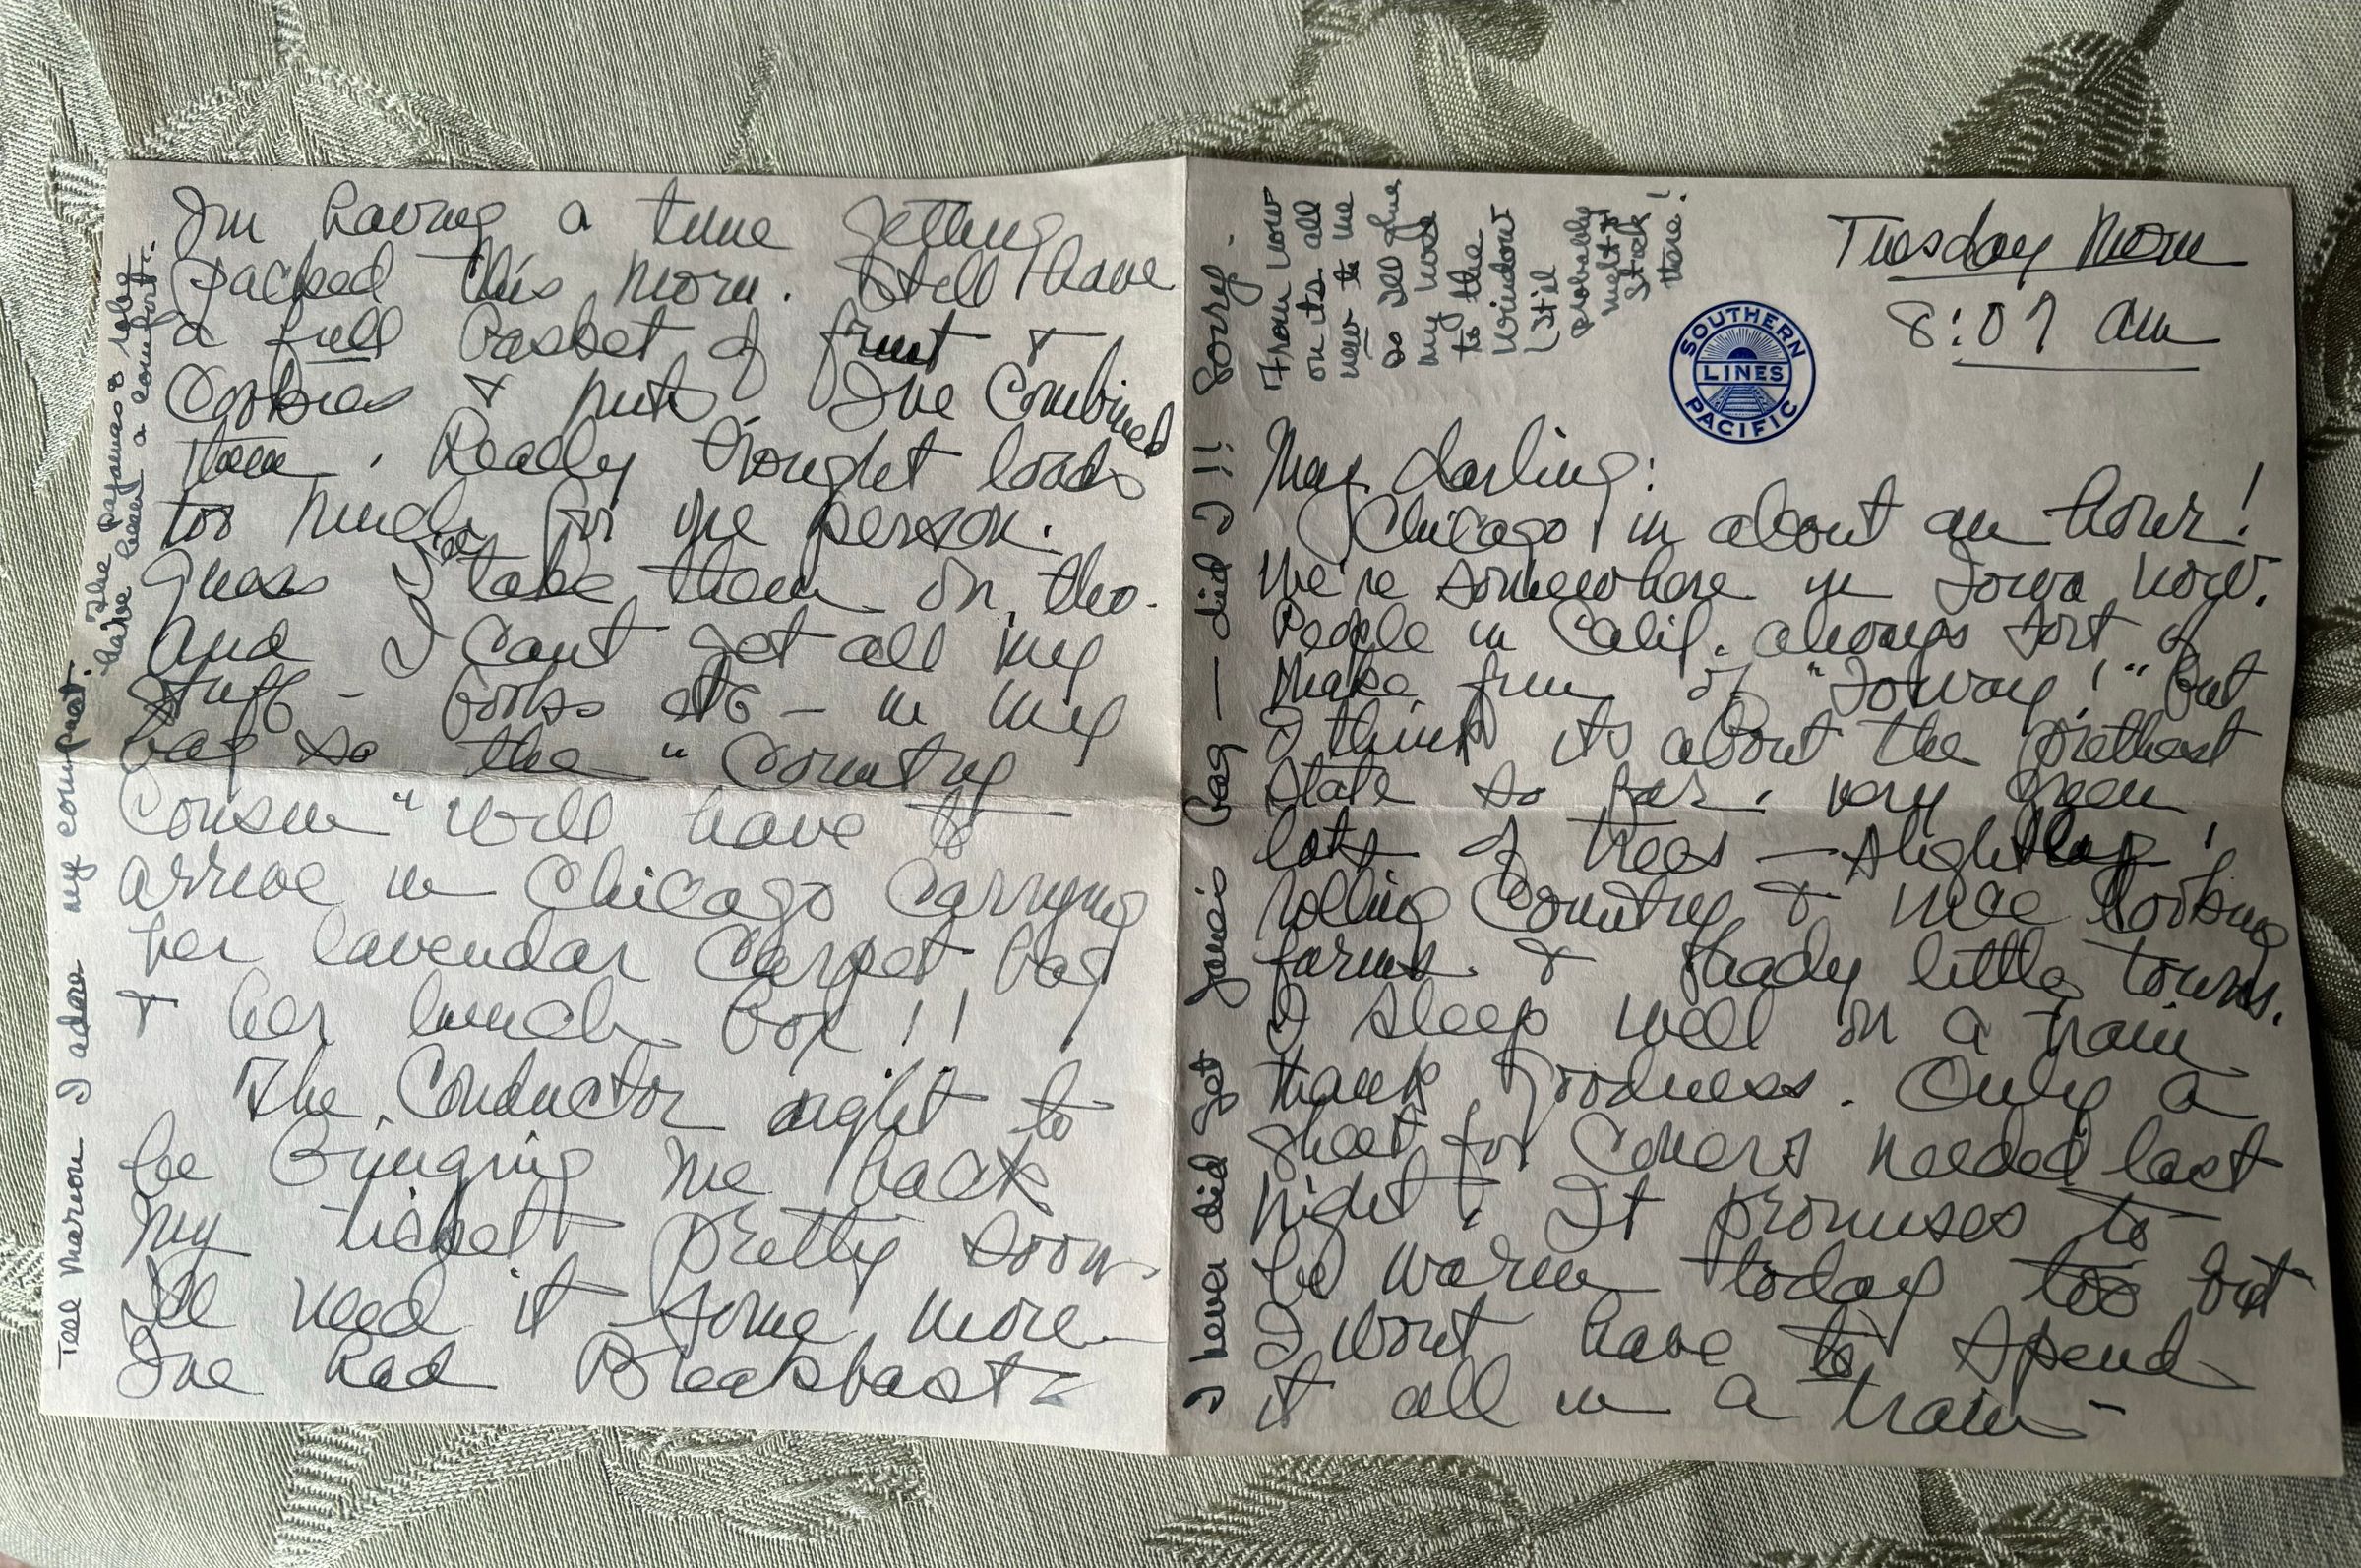 Tuesday Morn
8:07 am
SOUTHERN
LINES
PACIFIC
My darling:
Chicago in about an hour!
We're somewhere in Iowa now.
People in Calif. always sort of
make fun of "Ioway!" But
I think its about the prettiest
state so far. very green
lots of trees — slightly
rolling country & nice looking
farms. & shady little towns.
I sleep well on a train
thank goodness. Only a
sheet for covers needed last
night. It promises to
be warm today too but
I wont have to spend
it all in a train —
I never did get Janeis bag — did I!! Sorry.
From now
on its all
new to me
so Ill glue
my nose
to the
window
(Ill
probably
get
stuck
there!
I'm having a time getting
packed this morn. Still have
a full basket of fruit &
cookies & nuts. I've combined
them. Really thought loads
too much for one person.
Guess I'll take them on, tho.
And I cant get all my
stuff - books etc — in my
bag so the "Country
Cousin" will have to
arrive in Chicago carrying
her lavendar carpet bag
& her lunch box!!
The conductor ought to
be bringing me back
my ticket pretty soon.
I'll need it some more
I've had Breakfast —
Tell Marion I adore my compact. The pajamas & robe
have been a comfort.